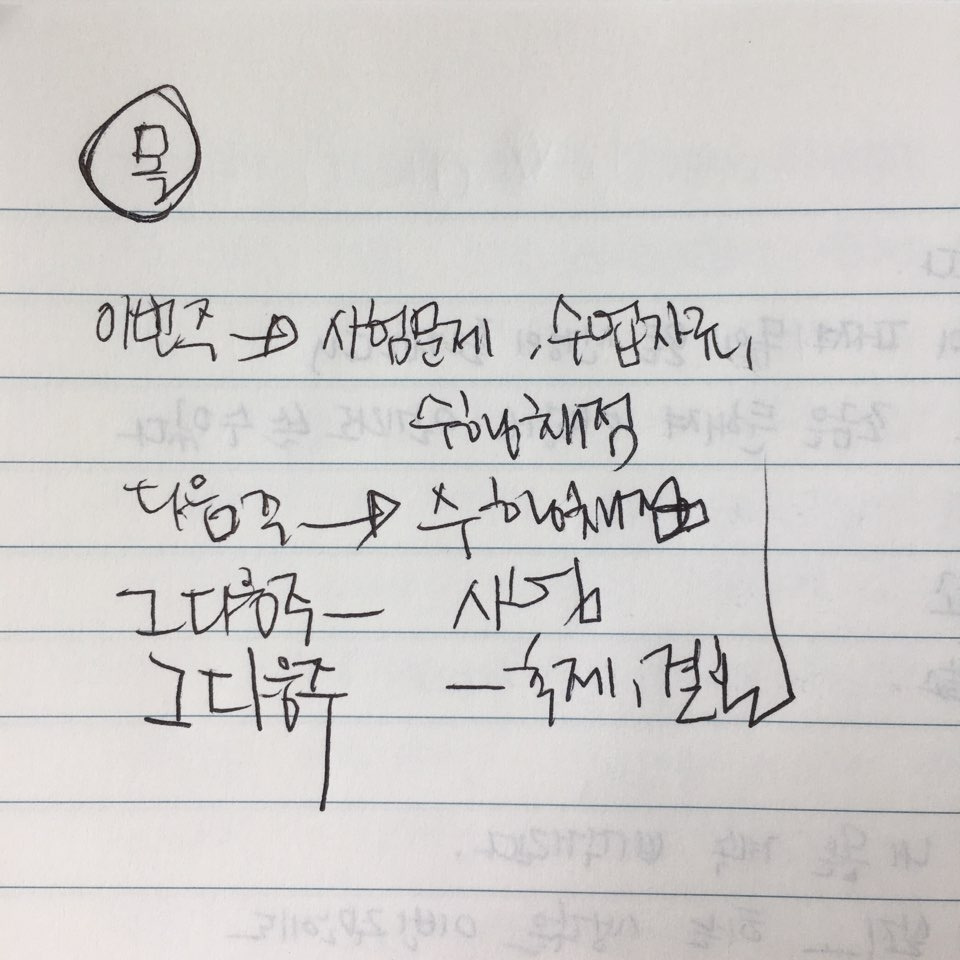 물
이번주 → 시험문제, 수업자료,
수행채점
다음주 → 수행채점
그다음주 - 시험
그다음주 - 축제,